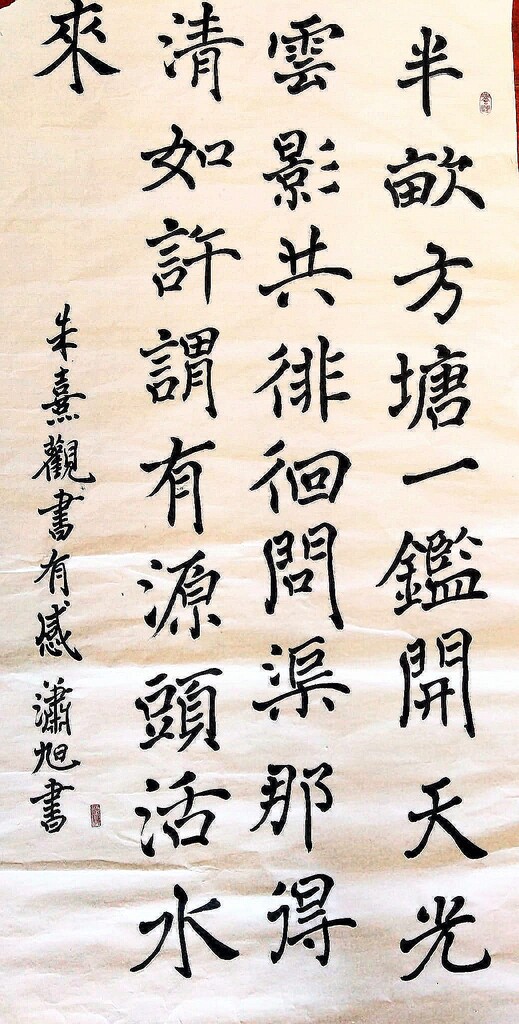 半畝方塘一鑑開天光
雲影共徘徊問渠那得
清如許謂有源頭活水
來
朱熹觀書有感 瀟旭書